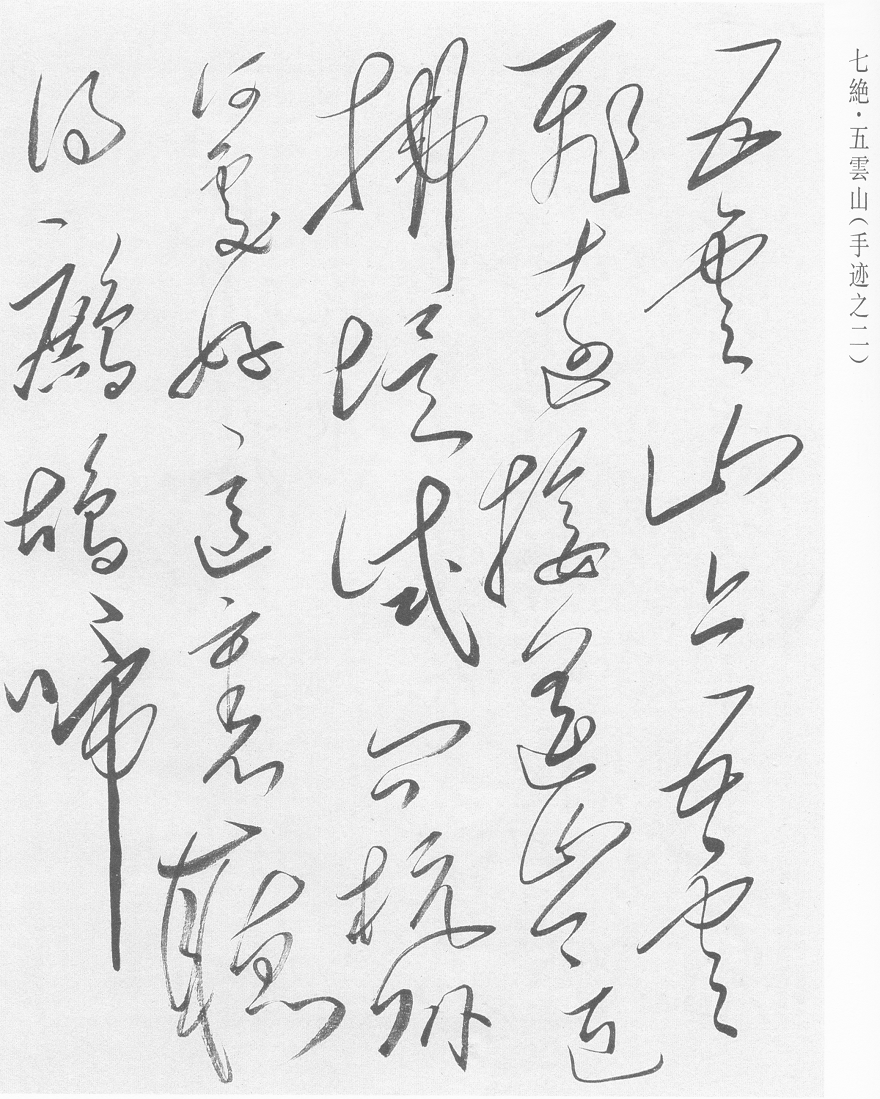 七絶·五雲山（手迹之二）
五雲山上五雲
飛遠接遙岑近
拂堤試问杭州
何處好這裏聽
得鷓鴣啼